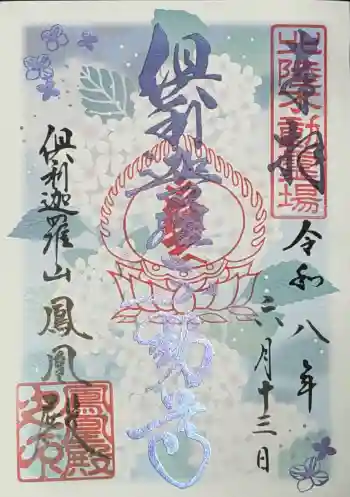 奉拝
北陸不動霊場
令和八年
六月十三日
倶利迦羅不動尊
倶利迦羅山
鳳凰殿
鳳凰殿